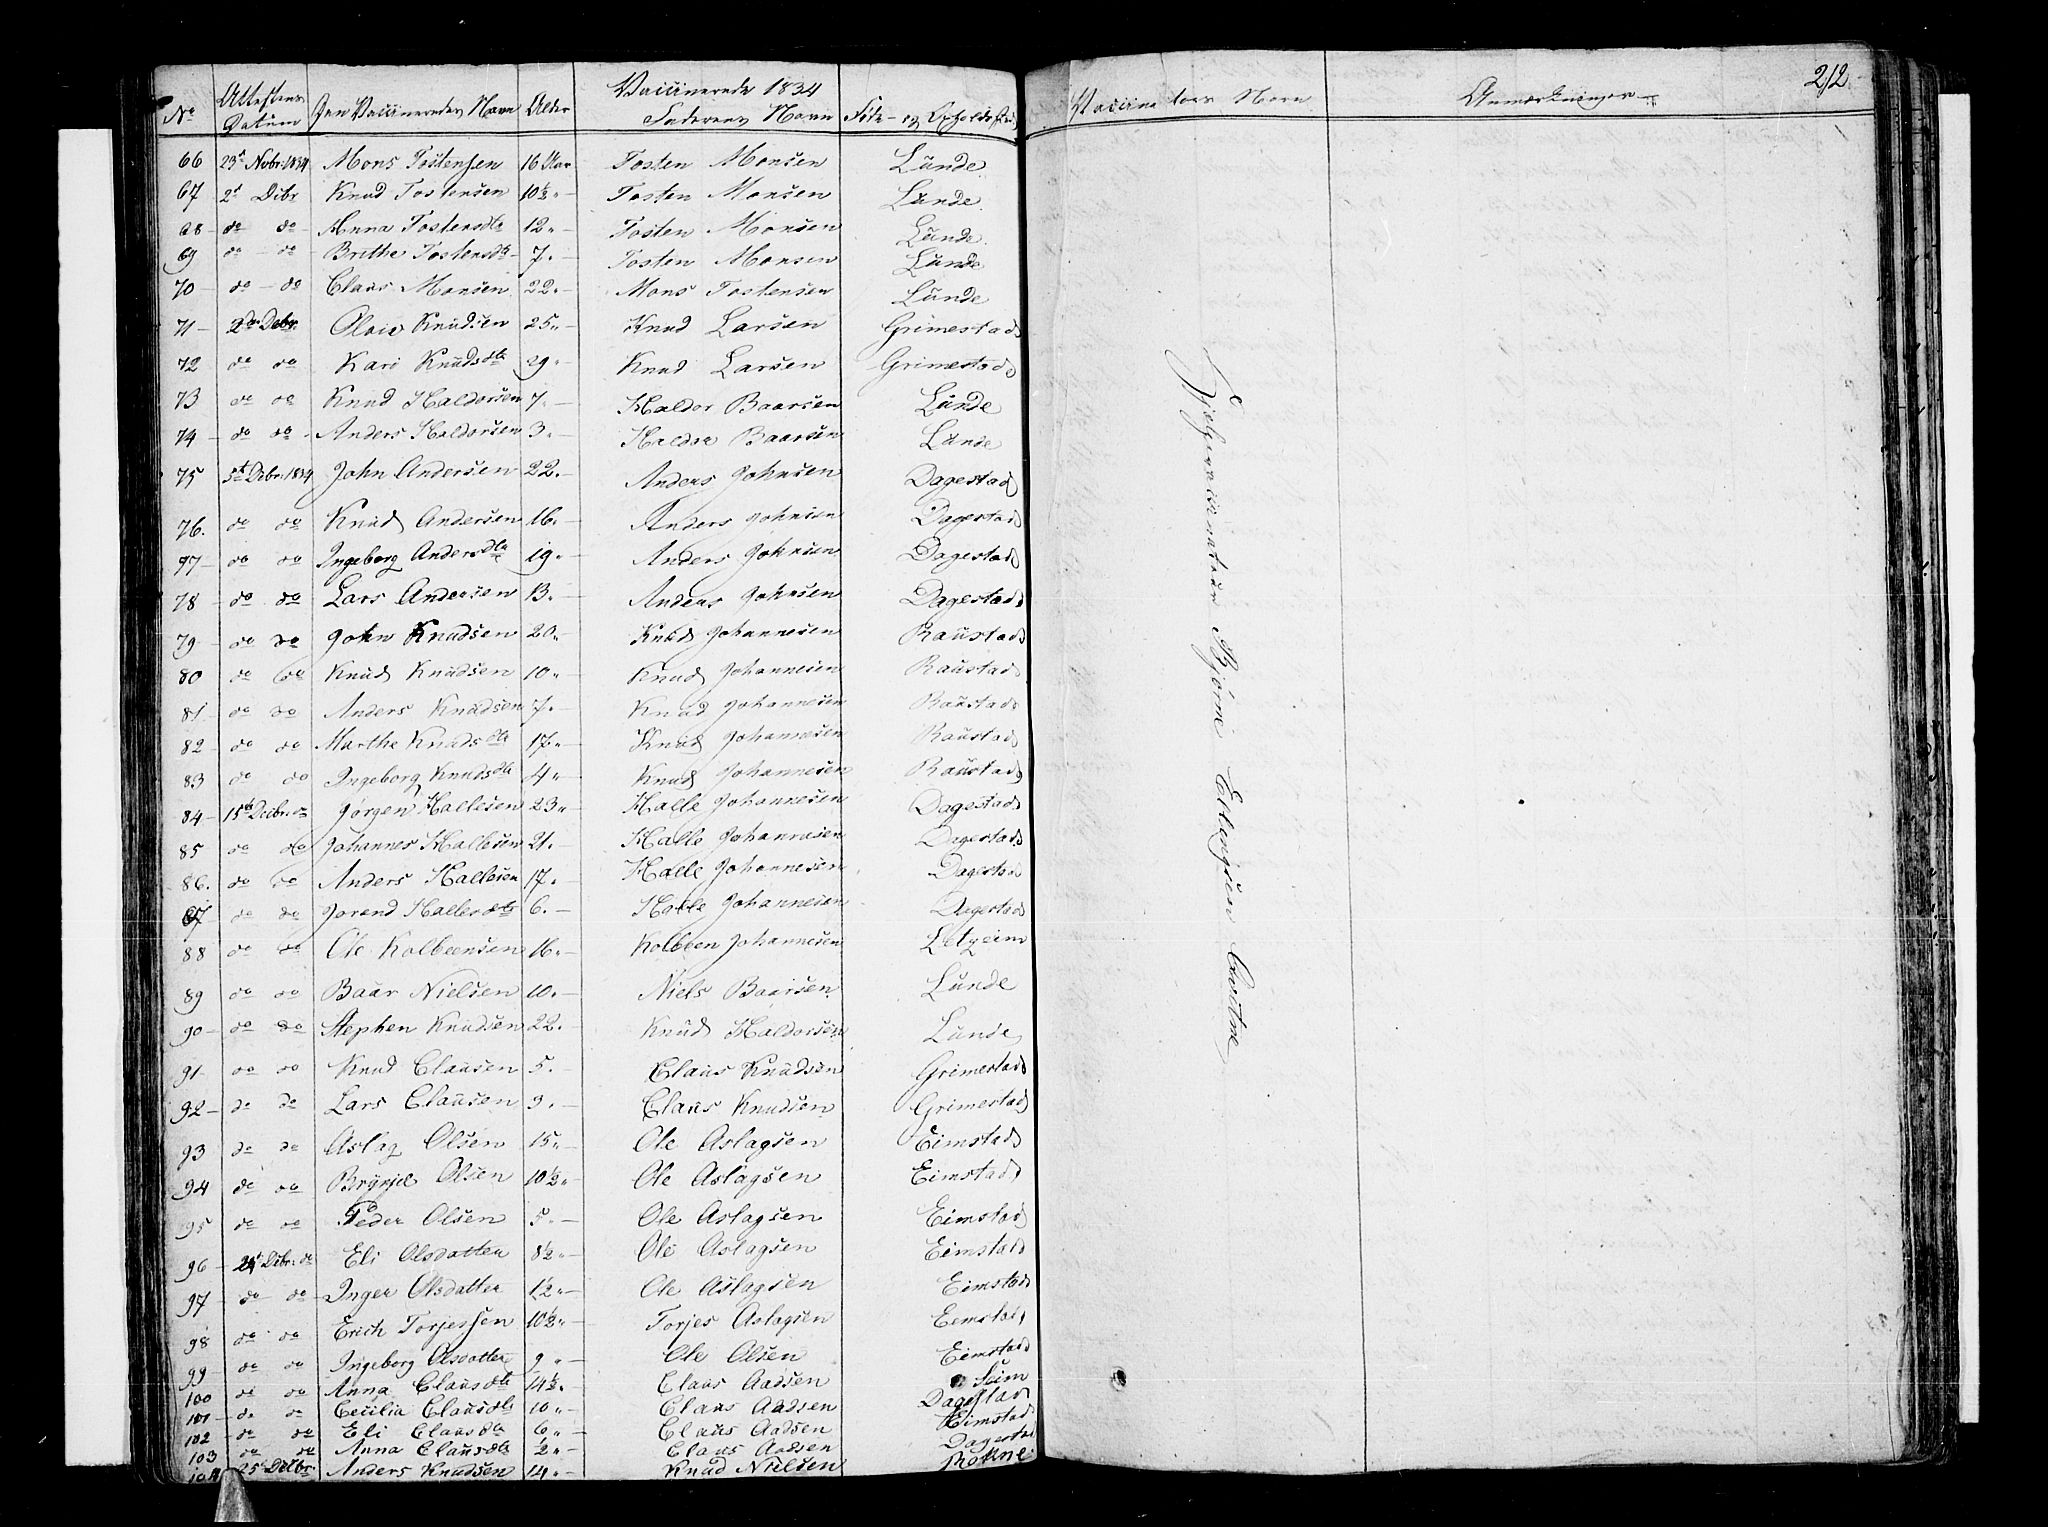 Vaccinerede 1834
No Attestens Datum Den Vaccineredes Navn Alder Faderens Navn Føde- og Opholdssted
66 23d Novbr: 1834 Mons Tostensen 16 Aar Tosten Monsen Lunde
67 2d Dcbr Knud Tostensen 10½ „ – Tosten Monsen Lunde
68 – do do Anna Tostensdtr 12 „ – Tosten Monsen Lunde
69 do – do Brithe Tostensdtr – 7 „ – Tosten Monsen Lunde
70 – do – do Claus Monsen 22 „ – Mons Tostensen Lunde
71 – 2d Debr Knudsen 25 „ – Knud Larsen Grimestad
72 do do Kari Knudsdtr 29 „ – Knud Larsen Grimestad
73 do do Knud Haldorsen 7 – Haldor Baarsen Lunde
74 – do do – Anders Haldorsen 3 „ – Haldor Baarsen Lunde
75 5t Dcbr: 1834 John Andersen 22 „ – Anders Johnsen Dagestad
76. do do Knud Andersen 16 „ – Anders Johnsen Dagestad
77 – do do Ingeborg Andersdtr 19 „ – Anders Johnsen Dagestad
78 – do do Lars Andersen 13 „ – Anders Johnsen Dagestad
79 – do do John Knudsen 20 „ – Knud Johannesen Raustad
80 do do Knud Knudsen 10 „ – Knud Johannesen Raustad
81 do do Anders Knudsen 7 „ – Knud Johannesen Raustad
82 – do do Marthe Knudsdtr 17 „ – Knud Johannesen Raustad
83 do do Ingeborg Knudsdtr 4 „ – Knud Johannesen Raustad
84 – 15d Dcbr: do Jørgen Hallesen 23 „ – Halle Johannesen Dagestad
85 do do Johannes Hallesen 21 „ – Halle Johannesen Dagestad
86. do do Anders Hallesen 17 „ – Halle Johannesen Dagestad
87 do do Jorend Hallesdtr 6 „ – Halle Johannesen Dagestad
88 do do Ole Kolbeensen 16 „ – Kolbeen Johannesen
89 do do Baar Nielsen 10 „ – Niels Baarsen Lunde
90 – do do Stephen Knudsen 22 „ – Knud Haldorsen Lunde
91 do do Knud Clausen 5 „ – Claus Knudsen Grimestad
92 – do do Lars Clausen 9 „ – Claus Knudsen Grimestad
93 do do Aslag Olsen 15 „ – Ole Aslagsen Eimstad
94 do do Brynjel Olsen 10½ „ – Ole Aslagsen Eimstad
95 do do Peder Olsen 5 „ – Ole Aslagsen Eimstad
96 – Dcbr: do Eli Olsdatter 8½ „ – Ole Aslagsen Eimstad
97 – do do Inger Olsdatter 1½ „ – Ole Aslagsen Eimstad
98 do do Erich Torjessen 10½ „ – Torjes Aslagsen Eemstad
99 – do do Ingeborg Olsdatter 9 „ – Ole Olsen Eimstad
100 do do Anna Clausdtr 14½ „ Claus Aadsen Seim
101 – do do Cecilia Clausdtr 10 „ – Claus Aadsen Dagestad
102 – do do Eli Clausdtr 6 „ – Claus Aadsen Eimstad
103 do do Anna Clausdtr ½ „ – Claus Aadsen Dagestad
104 25d Dcbr Anders Knudsen 14 „ – Knud Nielsen
212
Vaccinateurs Navn Anmærkninger
Bjørne Ellingsen